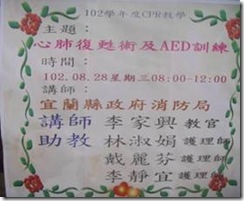 102學年度CPR教學
主題：
心肺復甦術及AED訓練
時間：
102.08.28星期三08:00-12:00
講師：
宜蘭縣政府消防局
講師 李家興 教官
助教 林淑娟 護理師
戴麗芬 護理師
李靜宜 護理師